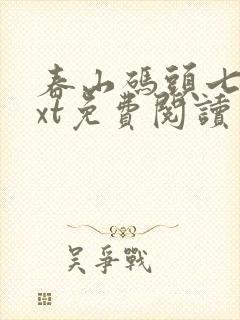 春山碼頭七
xt免費閱讀
吴爭戰